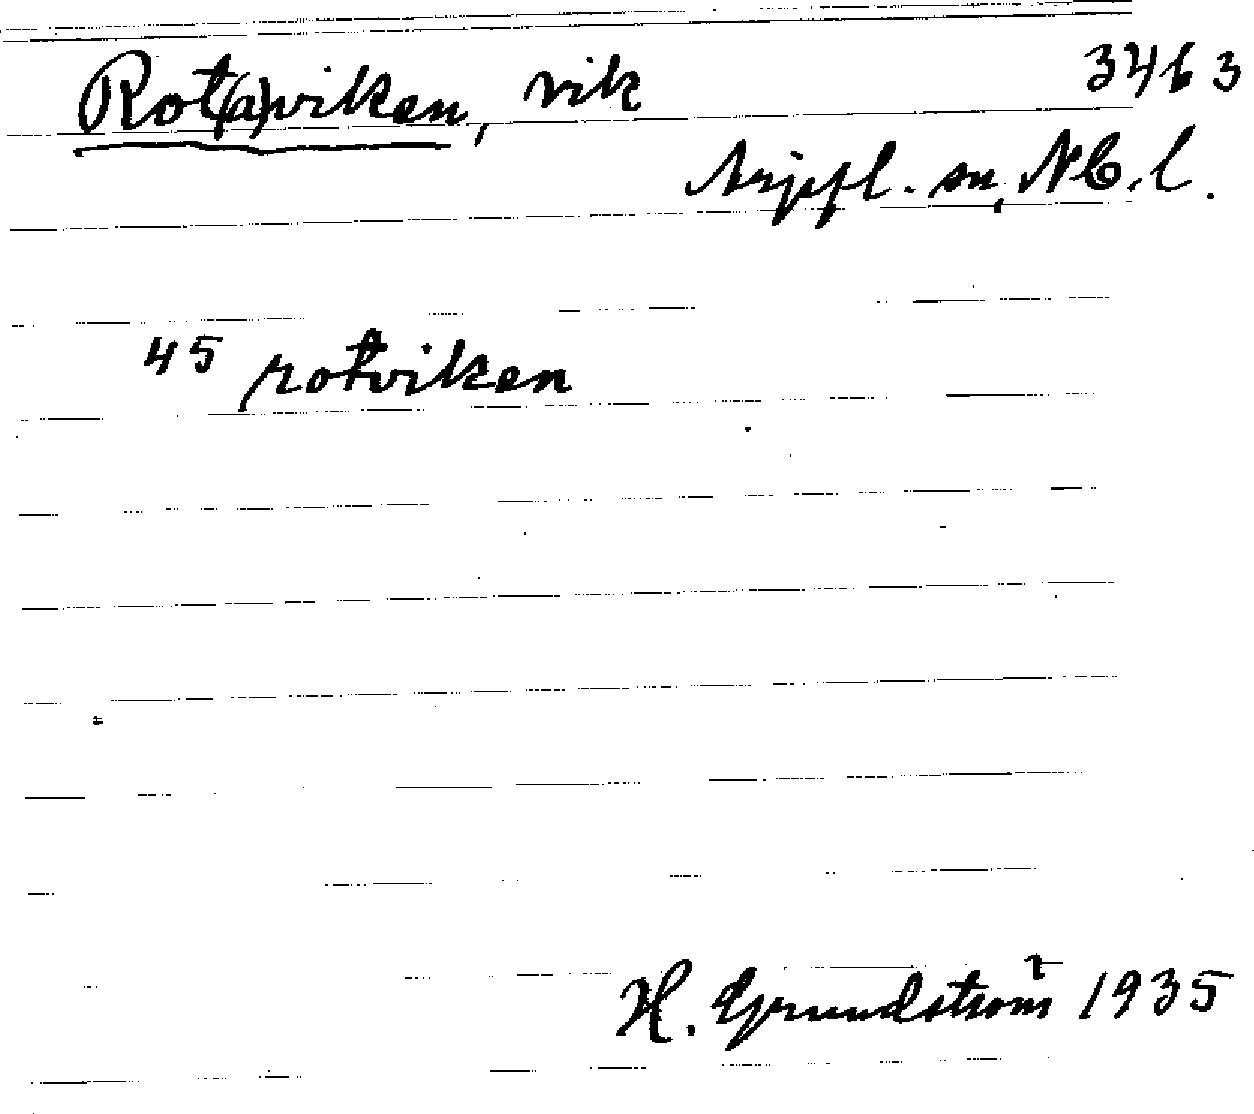 Rot(a)viken, vik 3463
Arjepl. sn, Nb. l.
45 rotviken
H. Grundström 1935